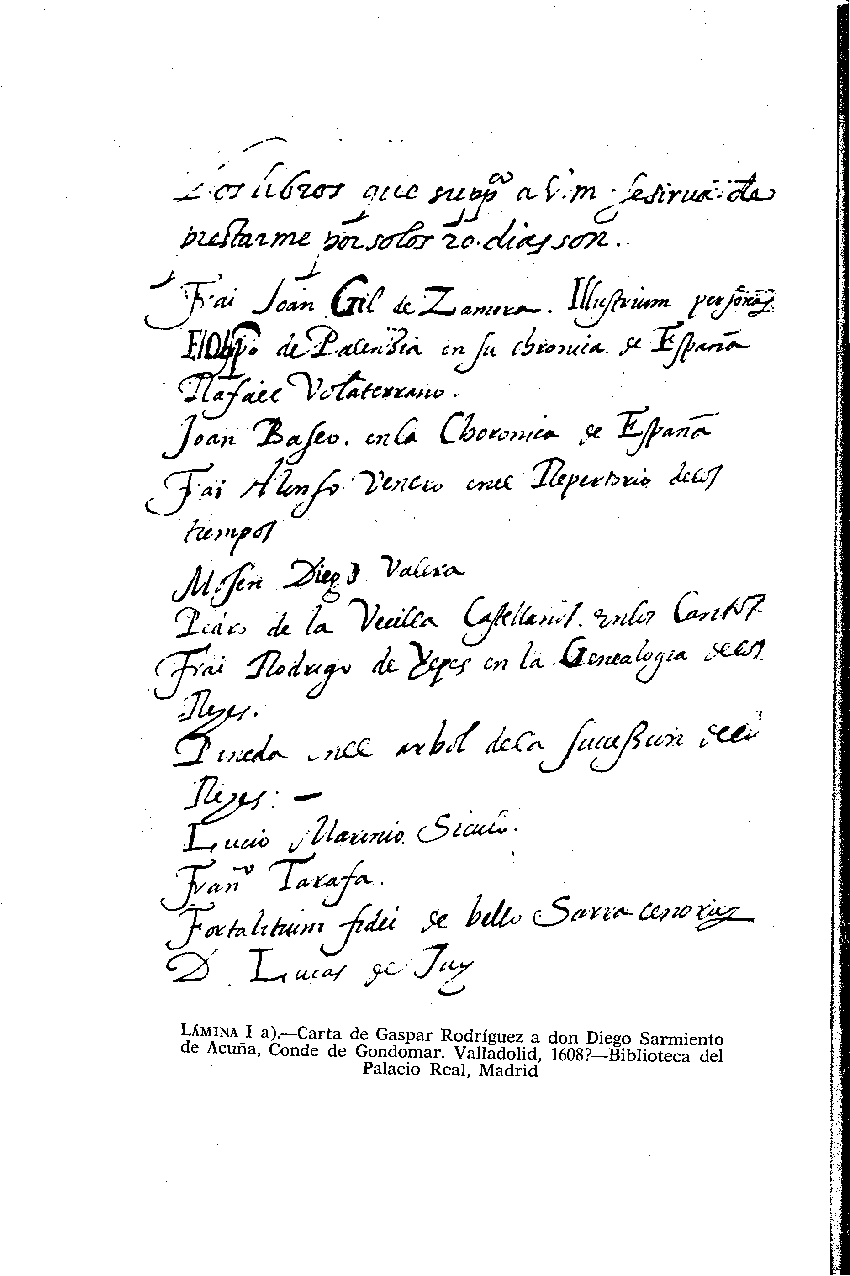 Los libros que suppco a V.m. se sirva de
prestarme por solos 20. dias son.
Frai Joan Gil de Zamora. Illustrium personas
El Obpo de Palençia en su chronica de España
Rafael Volaterrano.
Joan Baseo. en la Choronica de España
Frai Alonso Venero enel Repertorio delos
tiempos
Mosen Diego Valera
Pedro de la Vecilla Castellanos. enlos Cantos
Frai Rodrigo de Yepes en la Genealogia delos
Reyes.
Pineda enel arbol dela sucession delos
Reyes: —
Lucio Marinio Siculo.
Franco Tarafa.
Fortalitium fidei de bello Sarracenorum
D. Lucas de Tuy
LÁMINA I a).—Carta de Gaspar Rodríguez a don Diego Sarmiento
de Acuña, Conde de Gondomar. Valladolid, 1608?—Biblioteca del
Palacio Real, Madrid